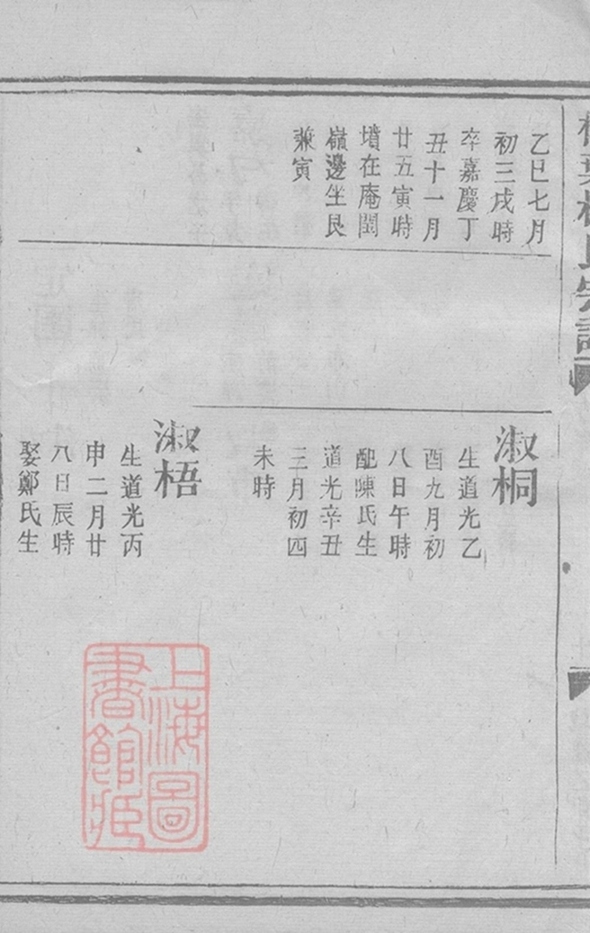 氏宗譜
乙巳七月
初三戌時
卒嘉慶丁
丑十一月
廿五寅時
墳在庵閏
嶺邊坐艮
兼寅
淑桐
生道光乙
酉九月初
八日午時
配陳氏生
道光辛丑
三月初四
未時
淑梧
生道光丙
申二月廿
八日辰時
娶鄭氏生
上海圖
書館藏